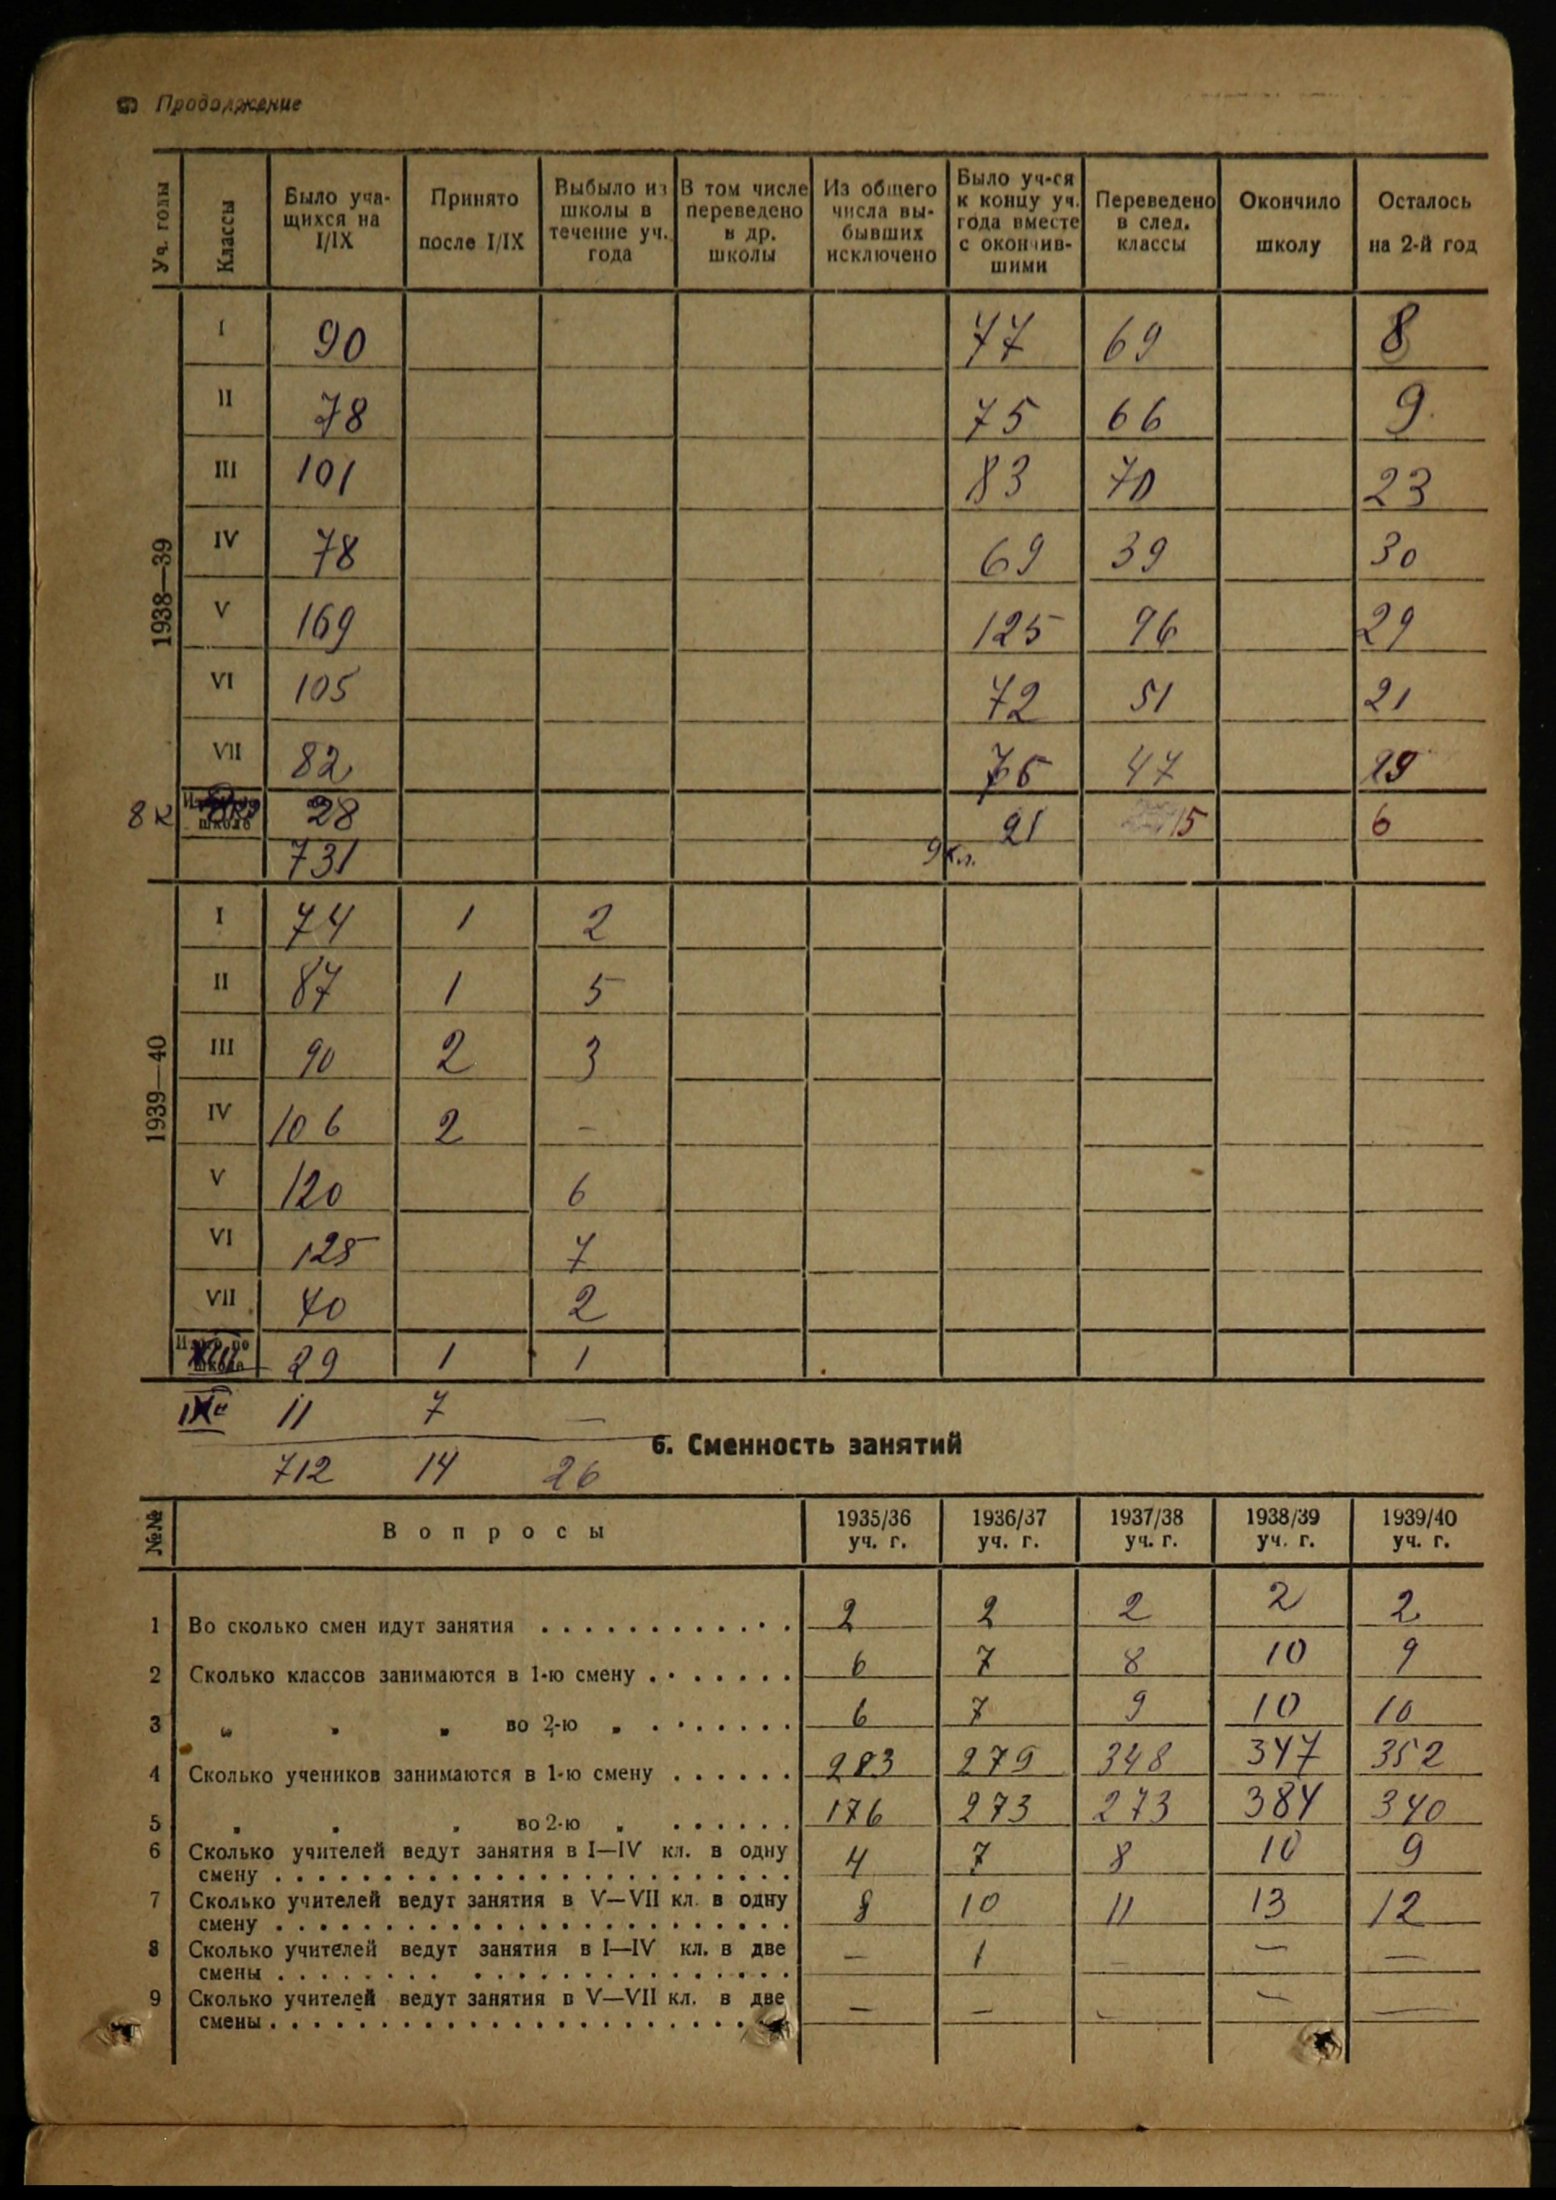 Продолжение
Уч. годы | Классы | Было учащихся на I/IX | Принято после I/IX | Выбыло из школы в течение уч. года | В том числе переведено в др. школы | Из общего числа выбывших исключено | Было уч-ся к концу уч. года вместе с окончившими | Переведено в след. классы | Окончило школу | Осталось на 2-й год
1938—39
I 90 77 69 8
II 78 75 66 9
III 101 83 70 23
IV 78 69 39 30
V 169 125 96 29
VI 105 72 51 21
VII 82 76 47 29
8 к 28 21 15 6
731 9 кл.
1939—40
I 74 1 2
II 87 1 5
III 90 2 3
IV 106 2 –
V 120 6
VI 125 7
VII 70 2
VIII 29 1 1
IX 11 7 —
712 14 26
6. Сменность занятий
№№ | Вопросы | 1935/36 уч. г. | 1936/37 уч. г. | 1937/38 уч. г. | 1938/39 уч. г. | 1939/40 уч. г.
1 Во сколько смен идут занятия 2 2 2 2 2
2 Сколько классов занимаются в 1-ю смену 6 7 8 10 9
3 „ „ „ во 2-ю „ 6 7 9 10 10
4 Сколько учеников занимаются в 1-ю смену 283 279 348 347 352
5 „ „ „ во 2-ю „ 176 273 273 384 340
6 Сколько учителей ведут занятия в I—IV кл. в одну
смену 4 7 8 10 9
7 Сколько учителей ведут занятия в V—VII кл. в одну
смену 8 10 11 13 12
8 Сколько учителей ведут занятия в I—IV кл. в две
смены — 1 — — —
9 Сколько учителей ведут занятия в V—VII кл. в две
смены — — — — —